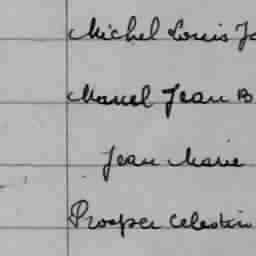 Michel Louis Jo
Marcel Jean B
Jean Marie
Prosper Celestin